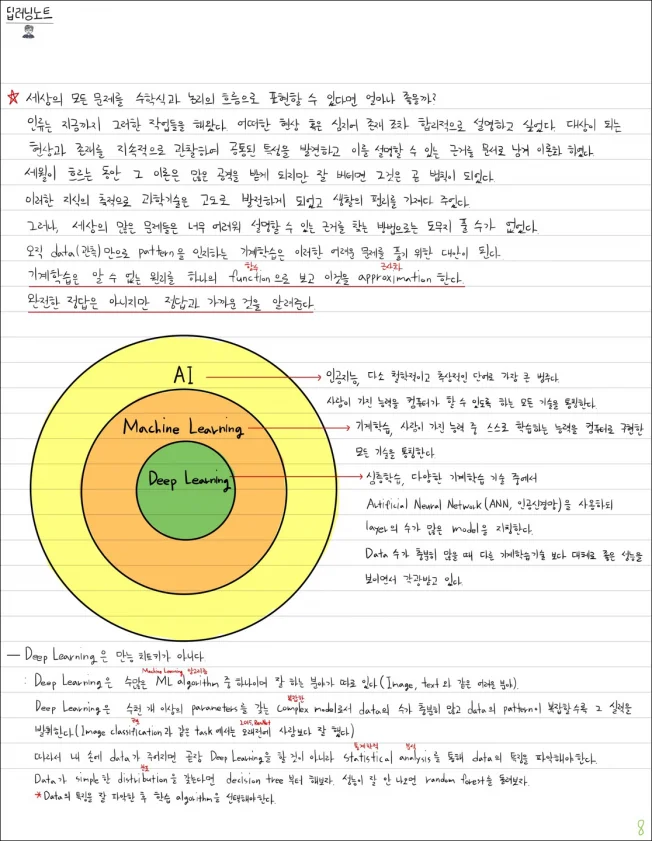 딥러닝노트
☆ 세상의 모든 문제를 수학식과 논리의 흐름으로 표현할 수 있다면 얼마나 좋을까?
인류는 지금까지 그러한 작업들을 해왔다. 어떠한 현상 혹은 심지어 존재 조차 합리적으로 설명하고 싶었다. 대상이 되는
현상과 존재를 지속적으로 관찰하여 공통된 특성을 발견하고 이를 설명할 수 있는 근거를 문서로 남겨 이론화 하였다.
세월이 흐르는 동안 그 이론은 많은 공격을 받게 되지만 잘 버티면 그것은 곧 법칙이 되었다.
이러한 지식의 축적으로 과학기술은 고도로 발전하게 되었고 생활의 편리를 가져다 주었다.
그러나, 세상의 많은 문제들은 너무 어려워 설명할 수 있는 근거를 찾는 방법으로는 도무지 풀 수가 없었다.
오직 data(관측)만으로 pattern을 인지하는 기계학습은 이러한 어려운 문제를 풀기 위한 대안이 된다.
함수 근사화
기계학습은 알 수 없는 원리를 하나의 function으로 보고 이것을 approximation 한다.
완전한 정답은 아니지만 정답과 가까운 것을 알려준다.
AI
인공지능, 다소 철학적이고 추상적인 단어로 가장 큰 범주다.
사람이 가진 능력을 컴퓨터가 할 수 있도록 하는 모든 기술을 통칭한다.
Machine Learning
기계학습, 사람이 가진 능력 중 스스로 학습하는 능력을 컴퓨터로 구현한
모든 기술을 통칭한다.
Deep Learning
심층학습, 다양한 기계학습 기술 중에서
Artificial Neural Network(ANN, 인공신경망)을 사용하되
layer의 수가 많은 model을 지칭한다.
Data 수가 충분히 많을 때 다른 기계학습기술 보다 대체로 좋은 성능을
보이면서 각광받고 있다.
— Deep Learning은 만능 치트키가 아니다.
Machine Learning 알고리즘
: Deep Learning은 수많은 ML algorithm 중 하나이며 잘 하는 분야가 따로 있다(Image, text와 같은 어려운 분야).
복잡한
Deep Learning은 수천 개 이상의 parameters를 갖는 complex model로서 data의 수가 충분히 많고 data의 pattern이 복잡할수록 그 실력을
2015, ResNet
발휘한다.(Image classification과 같은 task에서는 오래전에 사람보다 잘 했다.)
통계학적 분석
따라서 내 손에 data가 주어지면 곧장 Deep Learning을 할 것이 아니라 statistical analysis를 통해 data의 특징을 파악해야 한다.
분포
Data가 simple한 distribution을 갖는다면 decision tree부터 해보라. 성능이 잘 안 나오면 random forest를 돌려보라.
* Data의 특징을 잘 파악한 후 학습 algorithm을 선택해야 한다.
8